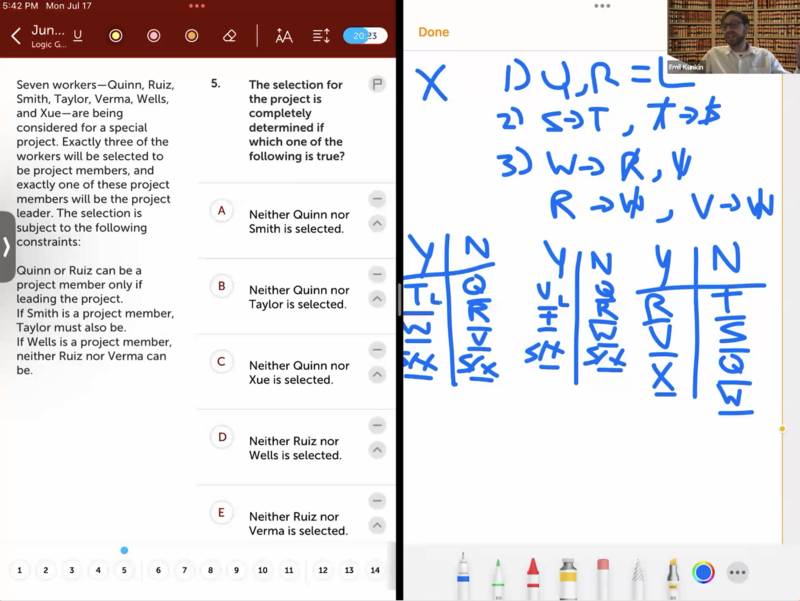 5:42 PM Mon Jul 17
Jun...
Logic G...
U
AA
20:23
Seven workers—Quinn, Ruiz,
Smith, Taylor, Verma, Wells,
and Xue—are being
considered for a special
project. Exactly three of the
workers will be selected to
be project members, and
exactly one of these project
members will be the project
leader. The selection is
subject to the following
constraints:
Quinn or Ruiz can be a
project member only if
leading the project.
If Smith is a project member,
Taylor must also be.
If Wells is a project member,
neither Ruiz nor Verma can
be.
5.
The selection for
the project is
completely
determined if
which one of the
following is true?
A
Neither Quinn nor
Smith is selected.
B
Neither Quinn nor
Taylor is selected.
C
Neither Quinn nor
Xue is selected.
D
Neither Ruiz nor
Wells is selected.
E
Neither Ruiz nor
Verma is selected.
1 2 3 4 5 6 7 8 9 10 11 12 13 14
Done
Emil Kunkin
X
1) Q, R = L
2) S→T, T→S
3) W→R, V
R→W, V→W
Y N
T L Q
W R
S/X V
S/X
Y N
V Q
T L R
S/X W
S/X
Y N
R T
V S
X Q
W